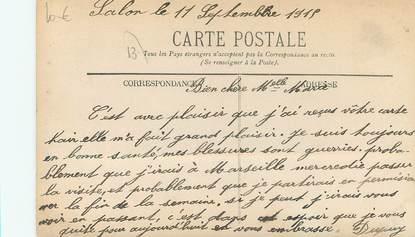 Salon le 11 Septembre 1915
CARTE POSTALE
Tous les Pays étrangers n'acceptent pas la Correspondance au recto.
(Se renseigner à la Poste).
CORRESPONDANCE ADRESSE
Bien chère Melle Marie
C'est avec plaisir que j'ai reçus vôtre carte
elle m'a fait grand plaisir. je suis toujours
en bonne santé, mes blessures sont guerries. proba-
blement que j'irais à Marseille mercredie passer
la visite, et probablement que je partirais en permision
ver la fin de la semaine, si je peut j'irais vous
voir en passant, c'est dans espoir que je vous
quite pour aujourd'huit et vous embrasse. Dupuy